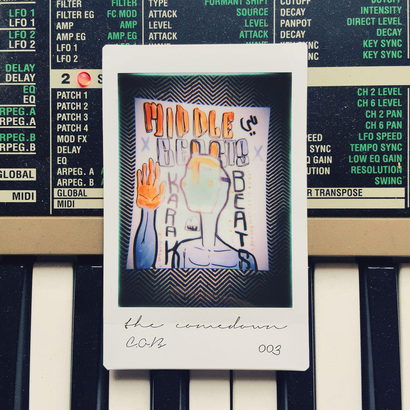 FILTER
FILTER EG
AMP
AMP EG
LFO 1
LFO 2
FILTER
FC MOD
AMP
EG
LFO 1
LFO 2
TYPE
PARAMETER
LEVEL
ATTACK
FORMANT SHIFT
SOURCE
LEVEL
ATTACK
CUTOFF
DECAY
PANPOT
DECAY
KEY SYNC
CUTOFF
INTENSITY
DIRECT LEVEL
DECAY
KEY SYNC
LFO 1
LFO 1
LFO 2
LFO 2
DELAY
DELAY
EQ
EQ
ARPEG.A
ARPEG.A
ARPEG.B
ARPEG.B
GLOBAL
MIDI
2
PATCH 1
PATCH 2
PATCH 3
PATCH 4
MOD FX
DELAY
EQ
ARPEG. A
ARPEG. B
GLOBAL
MIDI
CH 2 LEVEL
CH 6 LEVEL
CH 2 PAN
CH 6 PAN
LFO SPEED
TEMPO SYNC
LOW EQ GAIN
RESOLUTION
SWING
TRANSPOSE
MIDDLE
BEASTS
KARAK
BEATS
the comedown
C.O.B
003